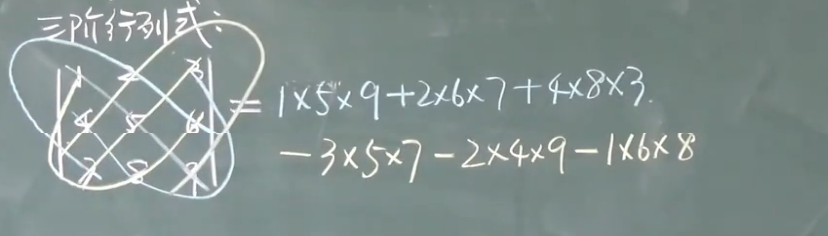 三阶行列式:
1 2 3
4 5 6
7 8 9
= 1×5×9+2×6×7+4×8×3.
-3×5×7-2×4×9-1×6×8